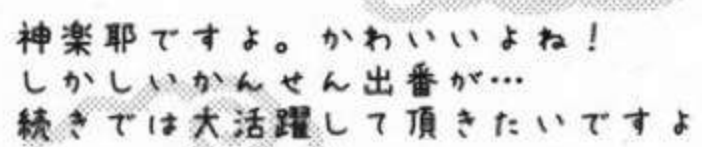 神楽耶ですよ。かわいいよね!
しかしいかんせん出番が…
続きでは大活躍して頂きたいですよ